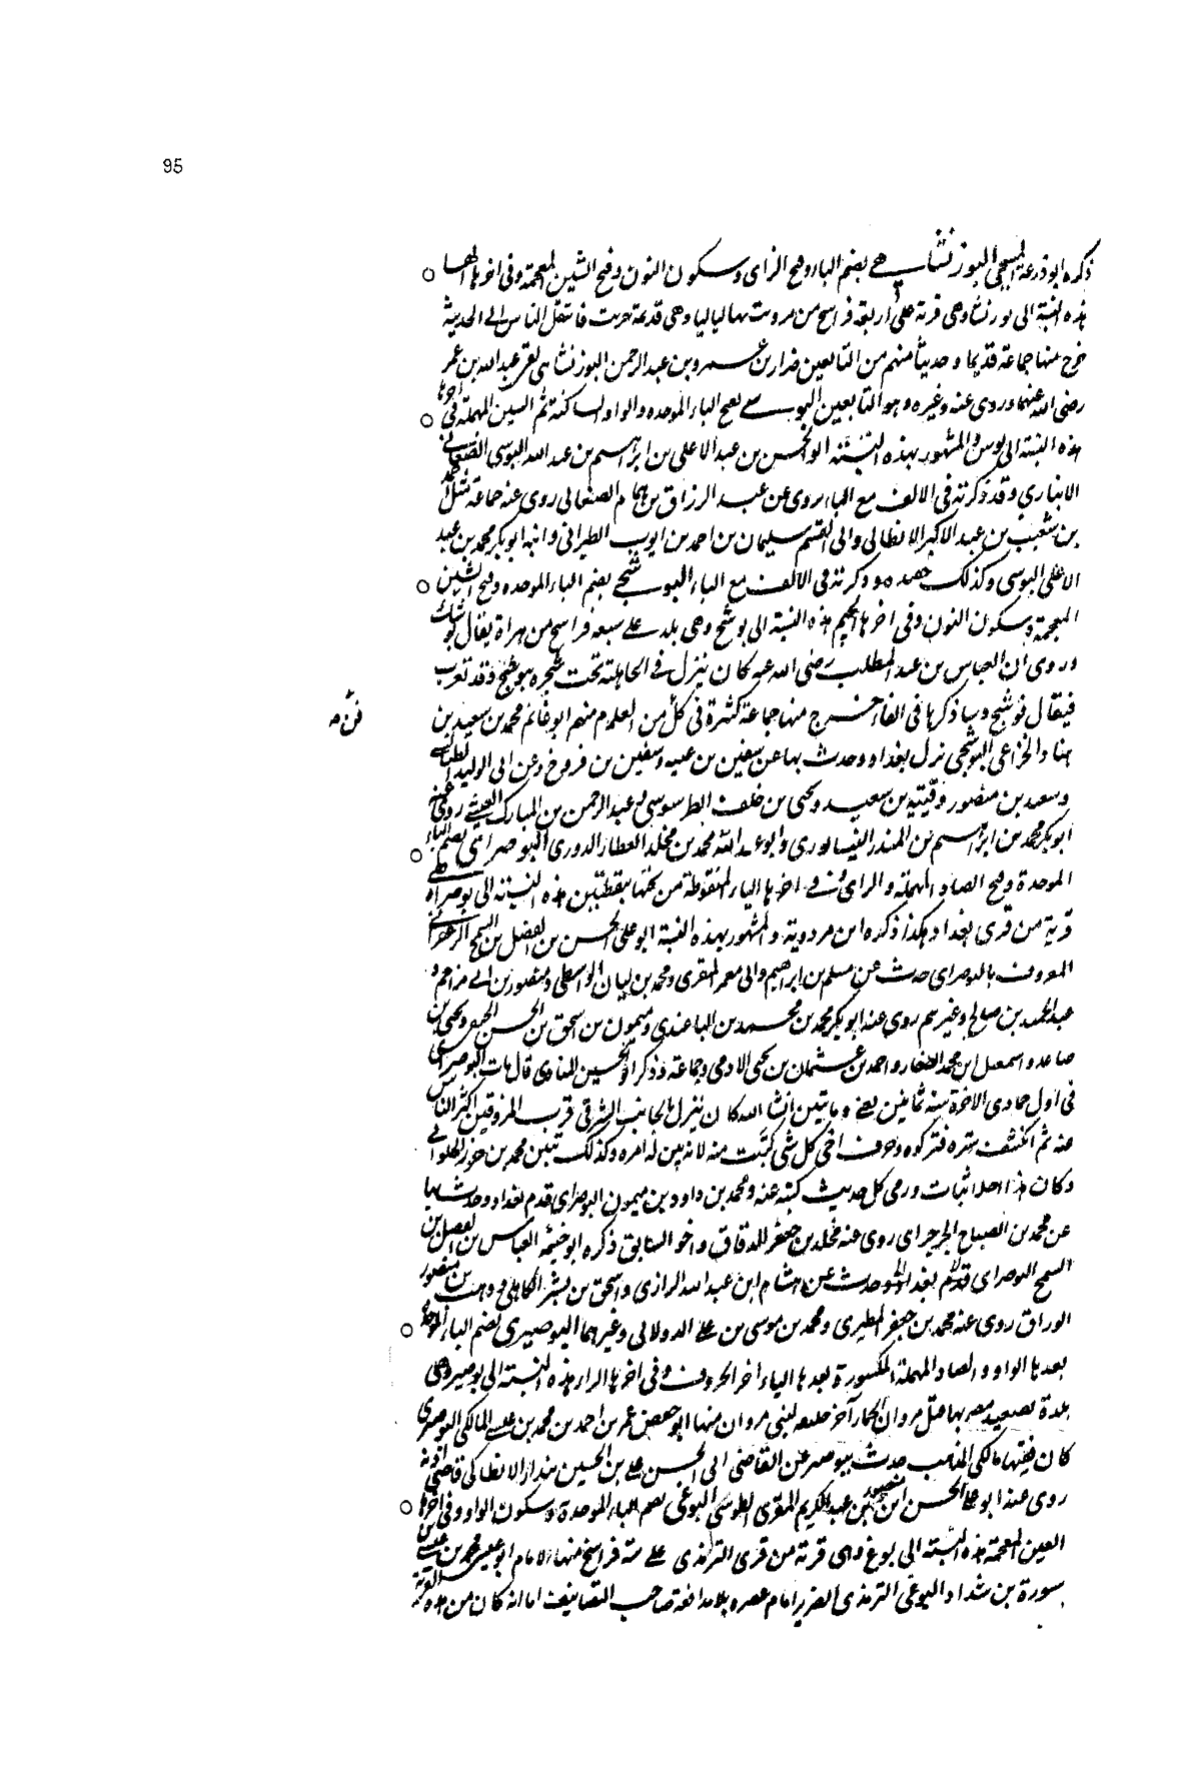 95
ذكره ابو زرعة السنجى البوزنشاهى بضم الباء وفتح الزاى وسكون النون وفتح الشين المعجمة وفى اخرها الهاء
هذه النسبة الى بوزنشاه وهى قرية على اربعة فراسخ من مرو بت بها ليالى وهى قديمة خربت فانتقل الناس الى الحديثة
خرج منها جماعة قديما وحديثا منهم من التابعين ضرار بن عمرو بن عبد الرحمن البوزنشاهى لقى عبد الله بن عمر
رضى الله عنهما وروى عنه وغيره وهو التابعين البوسى بفتح الباء الموحده والواو الساكنة ثم السين المهملة فى اخرها
هذه النسبة الى بوس والمشهور بهذه النسبة ابو الحسن بن عبد الاعلى بن ابراهيم بن عبد الله البوسى الصنعانى
الابناوى وقد ذكرته فى الالف مع الباء يروى عن عبد الرزاق بن همام الصنعانى روى عنه جماعة مثل
بن شعيب بن عبد الاكبر الانطاكى وابى القسم سليمان بن احمد بن ايوب الطبرانى وابنه ابو بكر محمد بن عبد
الاعلى البوسى وكذلك حفيده وذكرته فى الالف مع الباء البوشنجى بضم الباء الموحده وفتح الشين
المعجمة وسكون النون وفى اخرها الجيم هذه النسبة الى بوشنج وهى بلد على سبعة فراسخ من هراة يقال لها بوشنك
وروى ان العباس بن عبد المطلب رضى الله عنه كان ينزل فى الجاهلية تحت شجرة ببوشنج وقد تعرب
فيقال فوشنج وسياذكرها فى الفاء خرج منها جماعة كثيرة فى كل فن من العلوم منهم ابو غانم محمد بن سعيد بن
هناد الخزاعى البوشنجى نزل بغداد وحدث بها عن سفين بن عيينه وسفين بن فروخ وعن ابى الوليد الطيالسى
وسعيد بن منصور وقتيبة بن سعيد ويحيى بن خلف الطرسوسى وعبد الرحمن بن المبارك العيشى روى عنه
ابو بكر محمد بن ابراهيم بن المنذر النيسابورى وابو عبد الله محمد بن مخلد العطار الدورى البوصراى بضم الباء
الموحدة وفتح الصاد المهملة والراى وفى اخرها الياء المنقوطة من تحتها بنقطتين هذه النسبة الى بوصرا وهى
قرية من قرى بغداد هكذا ذكره ابن مردوية والمشهور بهذه النسبة ابو على الحسن بن الفضل بن السمح الزعفرانى
المعروف بالبوصراى حدث عن مسلم بن ابراهيم وابى معمر المقرى ومحمد بن ابان الواسطى ومنصور بن ابى مزاحم و
عبد الحميد بن صالح وغيرهم روى عنه ابو بكر محمد بن محمد بن الباغندى وميمون بن اسحق بن الحسن الحنفى ويحيى بن
صاعد واسمعيل ابن محمد الصفار واحمد بن عثمان بن يحيى الادمى وجماعة وذكر ابو الحسين المنادى قال مات البوصراى
فى اول جمادى الاخرة سنه ثمانين يعنى ومايتين انشا الله كان ينزل بالجانب الشرقى قرب المزوقين اكثر الناس
عنه ثم انكشف ستره فتركوه وخرقت اخى كل شى كتبت منه لانه تبين له امره وكذلك تبين محمد بن خزر الحلوانى
وكان هذا احد الثبات ورمى كل حديث كتبه عنه ومحمد بن داود بن ميمون البوصراى قدم بغداد وحدث بها
عن محمد بن الصباح الجرجراى روى عنه مخلد بن جعفر الدقاق واخو السابق ذكره ابو خيثمه العباس بن الفضل بن
السمح البوصراى قدم بغداد وحدث عن هشام ابن عبد الله الرازى واسحق بن بشر الكاهلى ووهب بن منصور
الوراق روى عنه محمد بن جعفر المطيرى ومحمد بن موسى بن على الدولابى وغيرهما البوصيرى بضم الباء الموحدة
بعدها الواو والصاد المهملة المكسورة بعدها الياء اخر الحروف وفى اخرها الراء هذه النسبة الى بوصير وهى
بلدة بصعيد مصر بها قتل مروان الحمار آخر خليفه لبنى مروان منها ابو حفص عمر بن احمد بن محمد بن عيسى المالكى البوصيرى
كان فقيها مالكى المذهب حدث ببوصير عن القاضى ابى الحسن على بن الحسين بندار الانطاكى قاضى اذنة
روى عنه ابو على الحسن ابن سعيد بن عبد الكريم المقرى الطوسى البوغى بضم الباء الموحدة وسكون الواو وفى اخرها
الغين المعجمة هذه النسبة الى بوغ وهى قرية من قرى الترمذى على ستة فراسخ منها الامام ابو عيسى محمد بن عيسى بن
سورة بن شداد البوغى الترمذى الضرير امام عصره بلا مدافعة صاحب التصانيف اما انه كان من هذه القرية